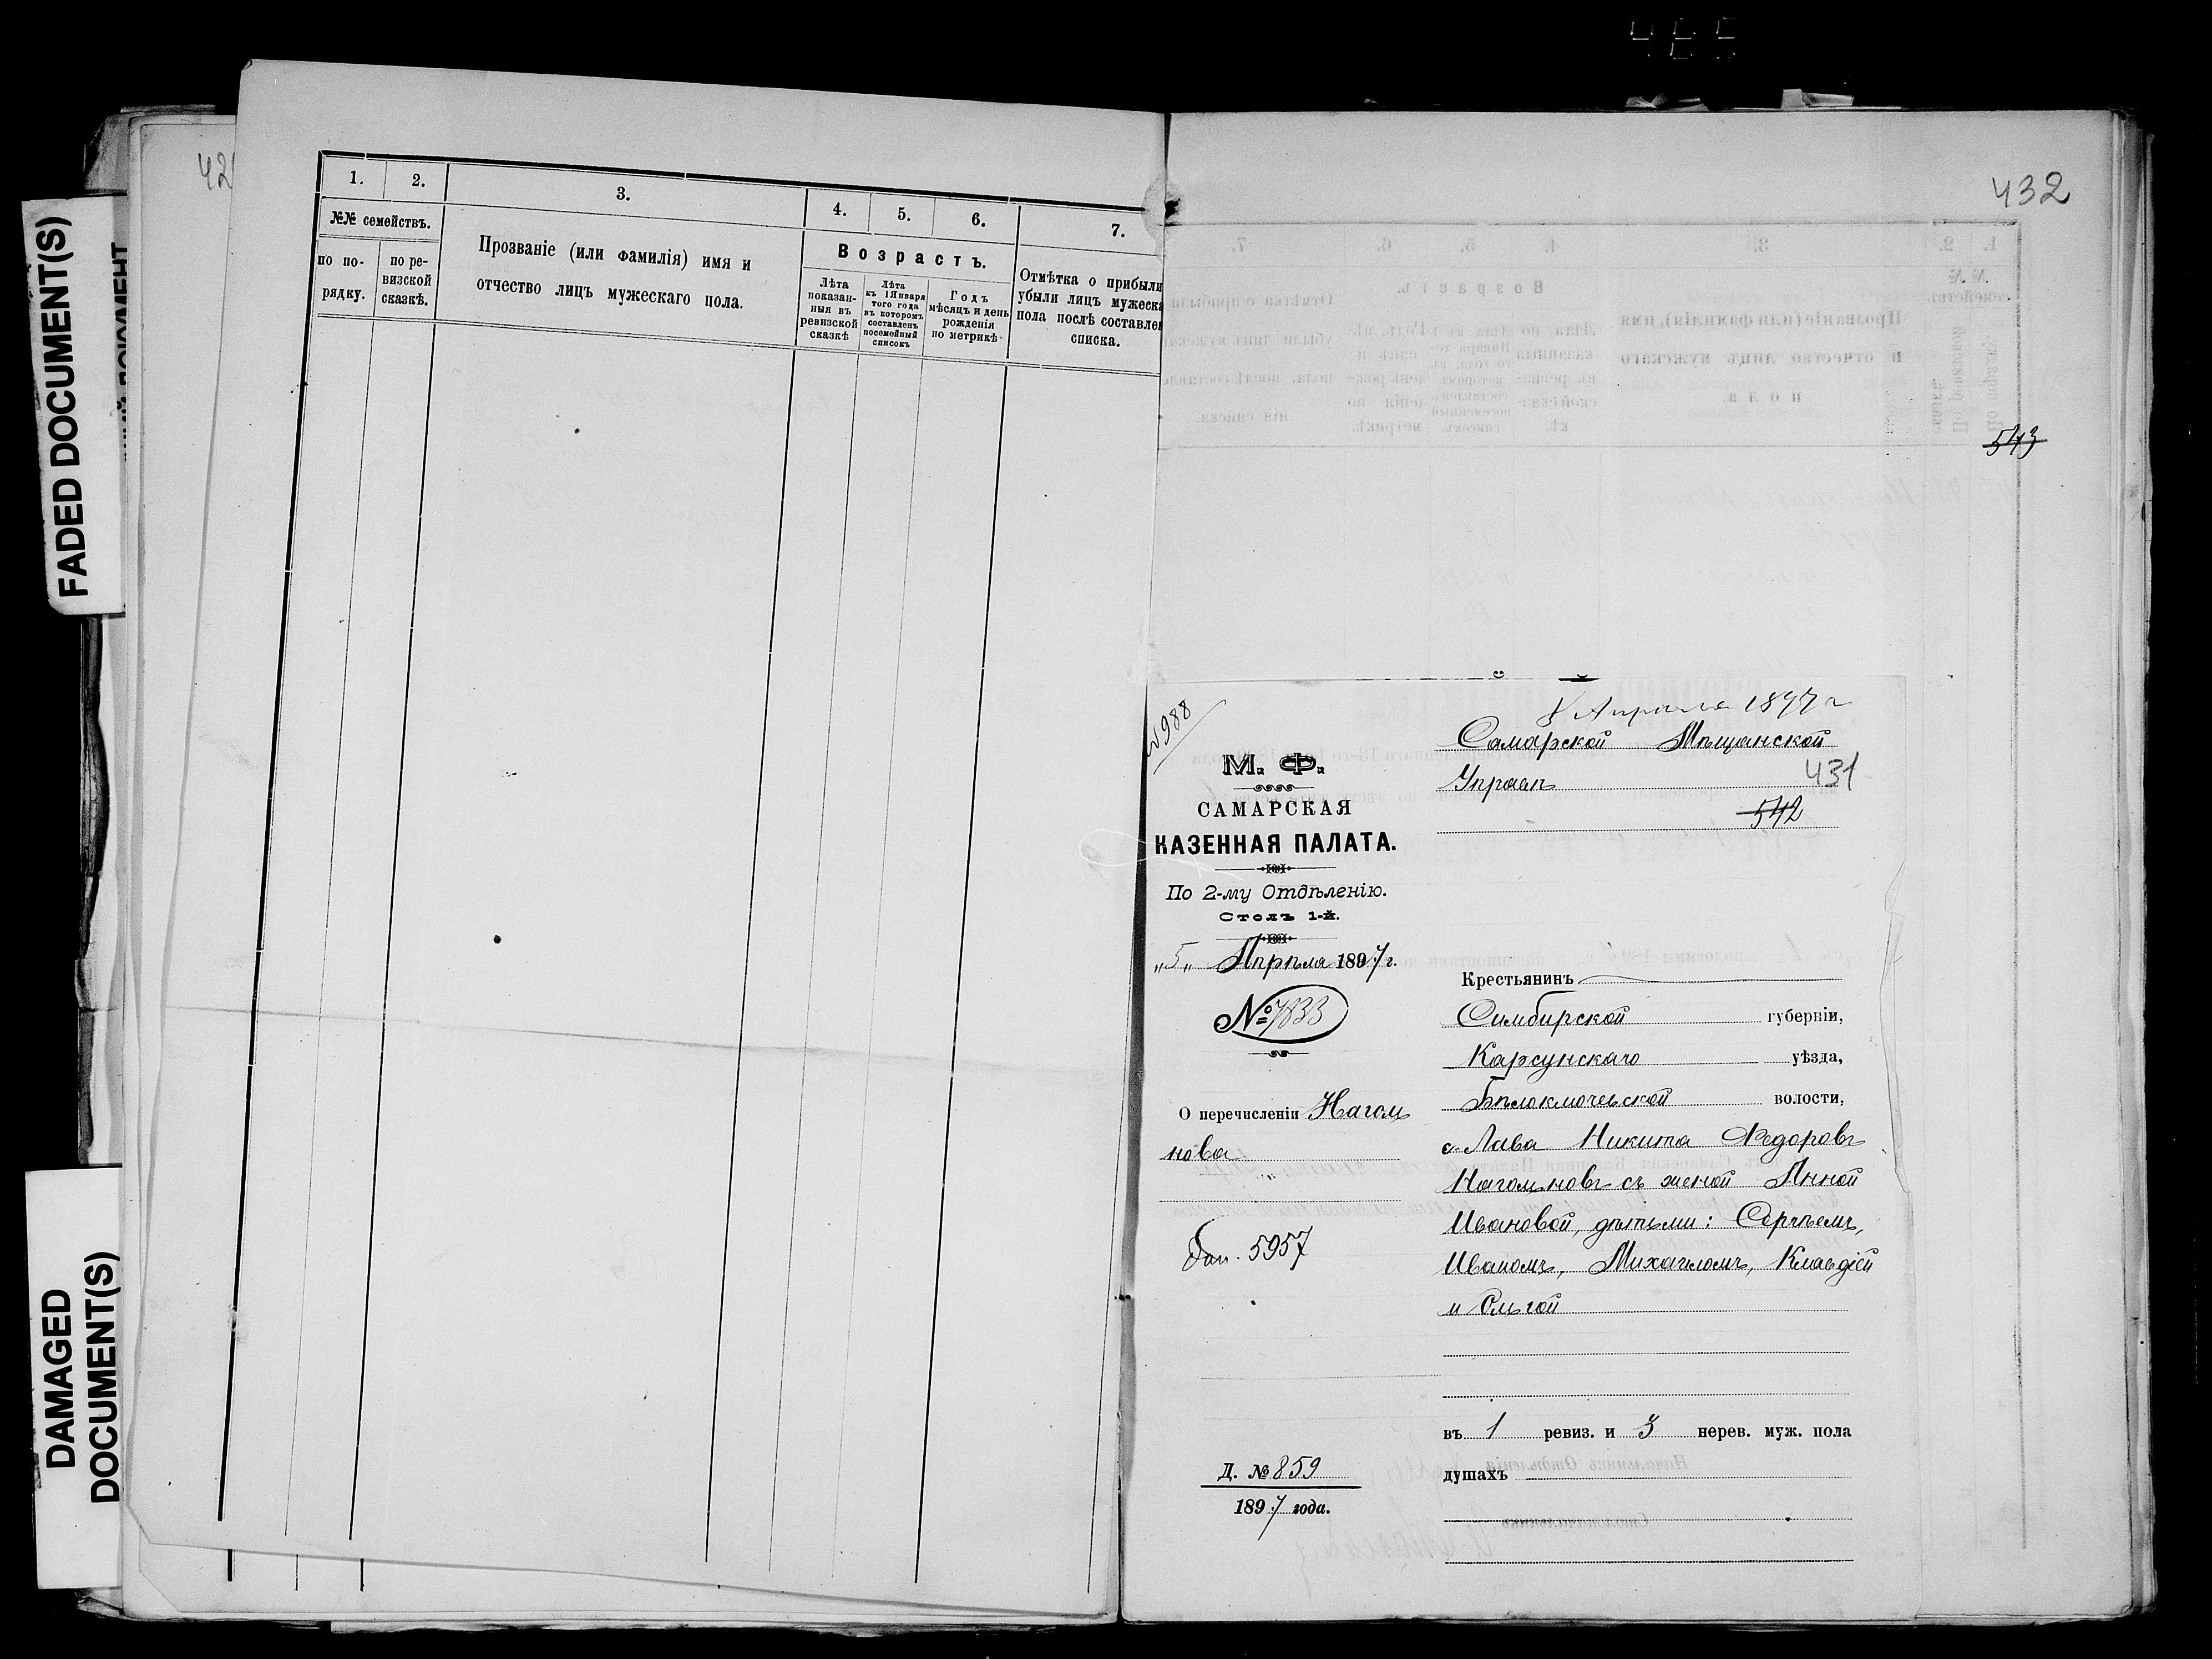 FADED DOCUMENT(S)
DAMAGED
DOCUMENT(S)
42
1.
2.
3.
4.
5.
6.
7.
№№ семействъ.
по по-
рядку.
по ре-
визской
сказкѣ.
Прозваніе (или фамилія) имя и
отчество лицъ мужескаго пола.
Возрастъ.
Лѣта
показан-
ныя въ
ревизской
сказкѣ
Лѣта
къ 1 Января
того года
въ которомъ
составленъ
посемейный
списокъ
Годъ
мѣсяцъ и день
рожденія
по метрикѣ
Отмѣтка о прибыли
убыли лицъ мужеска
пола послѣ составле
списка.
432
543
№988
Апрѣля 1897 г
Самарской Мѣщанской
Управѣ
431
542
М. Ф.
САМАРСКАЯ
КАЗЕННАЯ ПАЛАТА.
По 2-му Отдѣленію.
Столъ 1-й.
„5„ Апрѣля 1897 г.
№ 7833
О перечисленіи Нагот
нова
5957
Д. № 859
1897 года.
Крестьянинъ
Симбирской губерніи,
Карсунскаго уѣзда,
Бѣлоключевской волости,
с. Лава Никита Федоровъ
съ женой Анной
Ивановой, дѣтьми: Сергѣемъ,
Иваномъ, Михаиломъ, Клавдіей
и Ольгой
въ 1 ревиз. и 3 нерев. муж. пола
душахъ